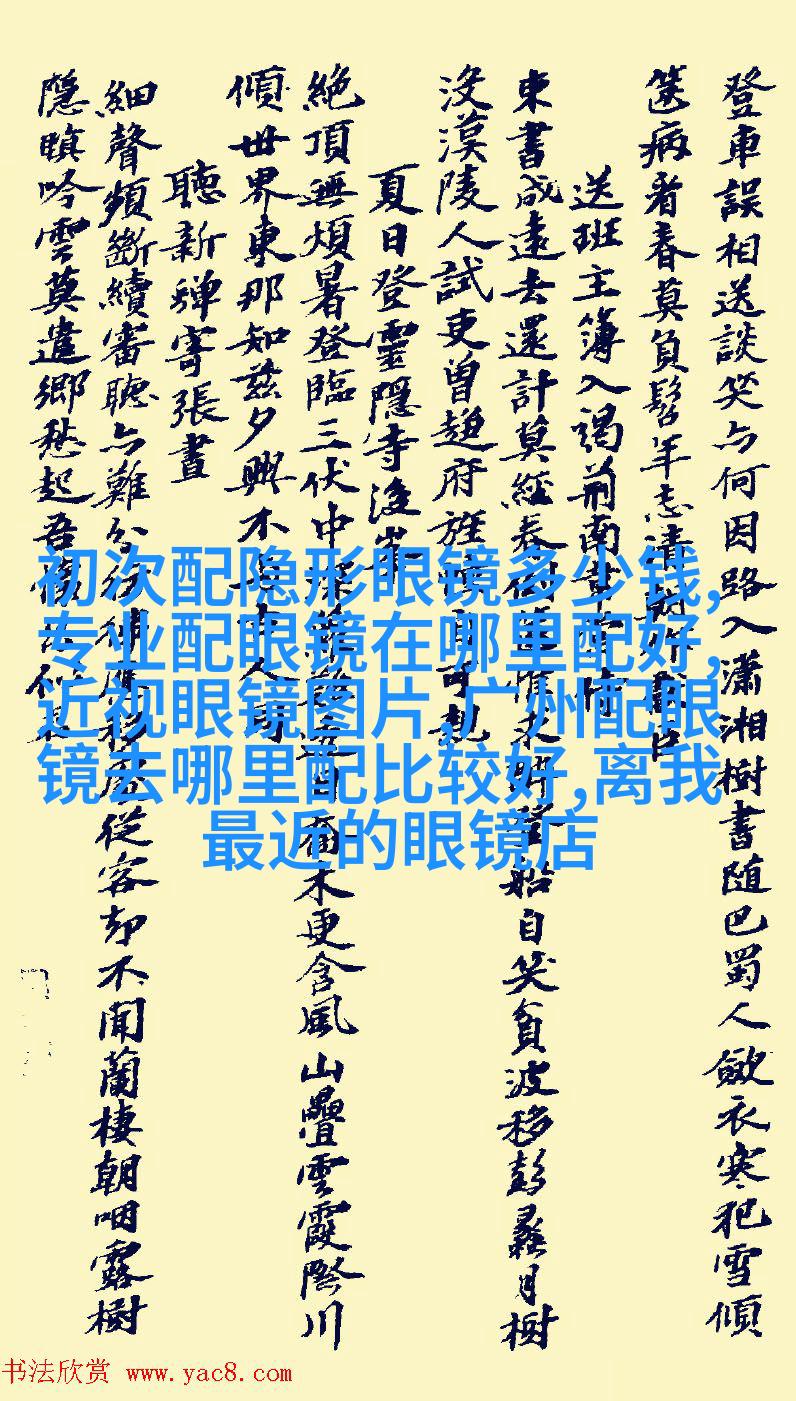 登車誤相送談笑亦何因路入瀟湘樹書随巴蜀人斂衣寒犯雪傾
篋病看春莫負髫年志清
送班主簿入謁荆南
東書成遠去還計莫經春 船自笑貧波移彭蠡月樹
没漢陵人試吏曽趍府
夏日登靈隱寺後峯
絶頂無煩暑登臨三伏中 喬木更含風山疊雲霞際川
傾世界東那知兹夕興不
聴新蟬寄張晝
細聲頻斷續審聴亦難分 從容却不聞蘭棲朝咽露樹
隠暝吟雲莫遣郷愁起吾
初次配隐形眼镜多少钱,
专业配眼镜在哪里配好,
近视眼镜图片,广州配眼
镜去哪里配比较好,离我
最近的眼镜店
书法欣赏 www.yac8.com